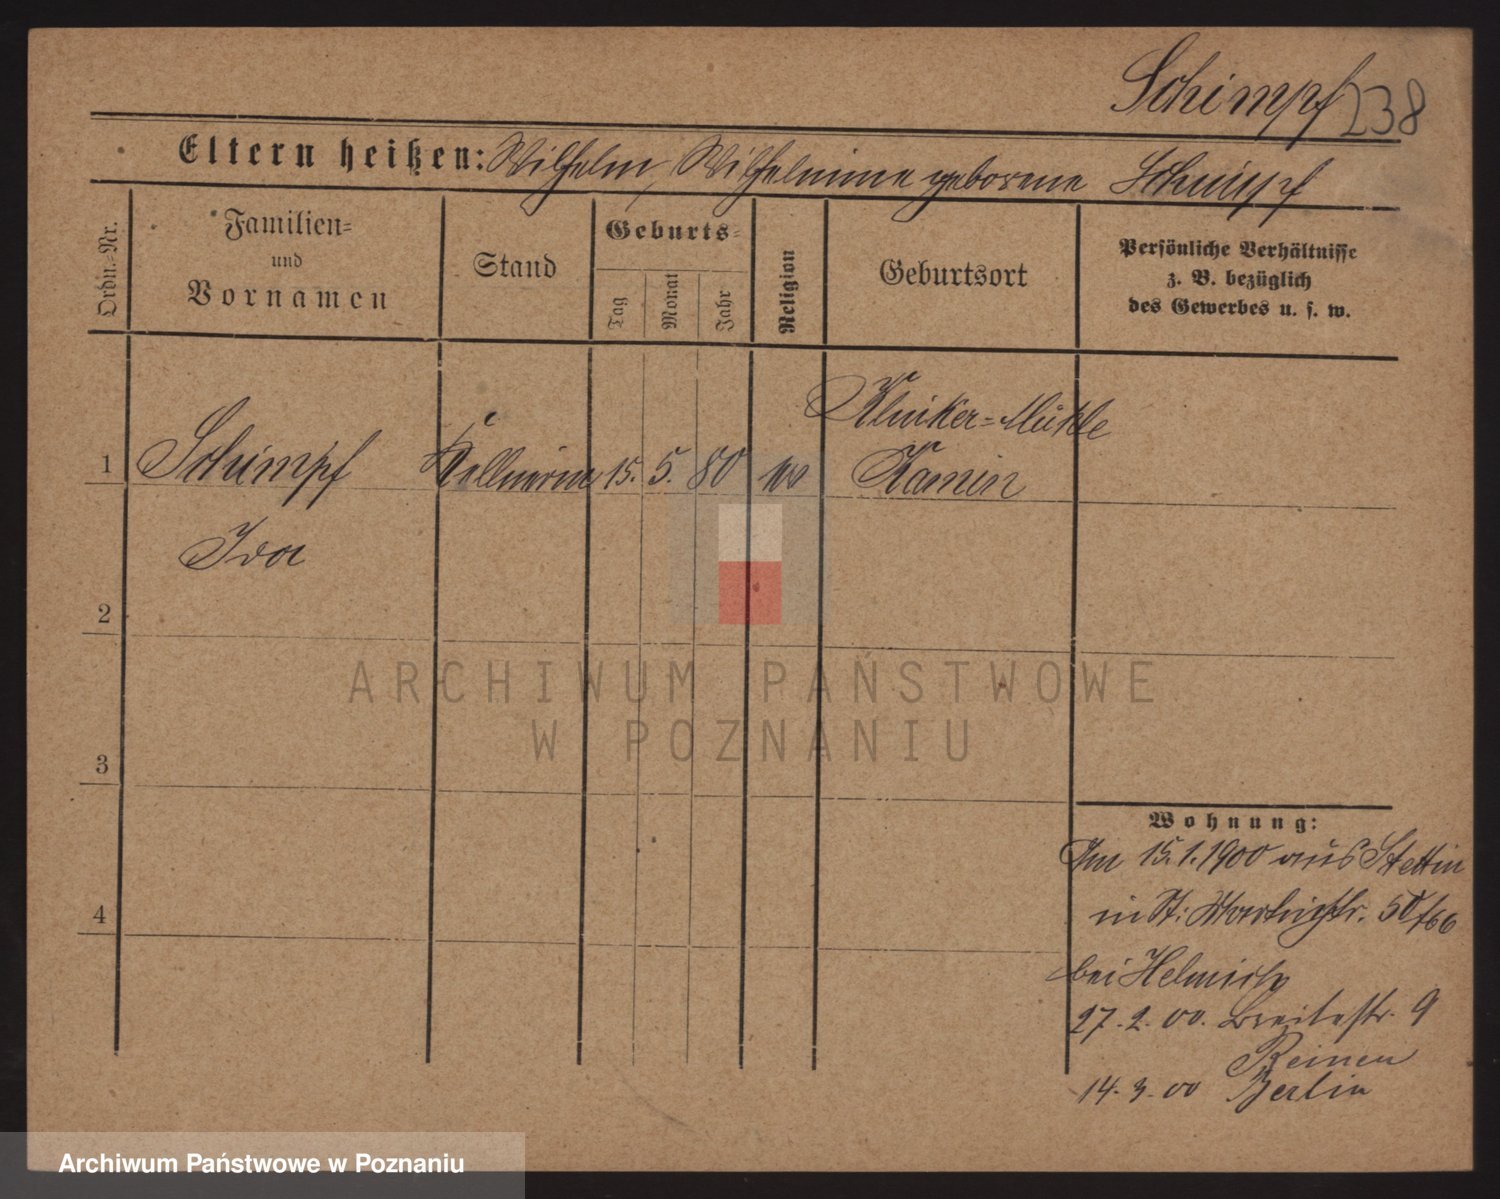 Schimpf 238
Eltern heißen: Wilhelm, Wilhelmine geborene Schimpf
Ordn.-Nr.
Familien-
und
Vornamen
Stand
Geburts-
Tag
Monat
Jahr
Religion
Geburtsort
Persönliche Verhältnisse
z. B. bezüglich
des Gewerbes u. s. w.
1
Schimpf
Kellnerin
15.
5.
80
Mühle
Kamin
Ida
2
3
4
ARCHIWUM PAŃSTWOWE
W POZNANIU
Wohnung:
Am 15.1.1900 aus Stettin
in St: Martinstr. 50/66
bei
27.2.00. Breitestr. 9
14.3.00 Berlin
Archiwum Państwowe w Poznaniu